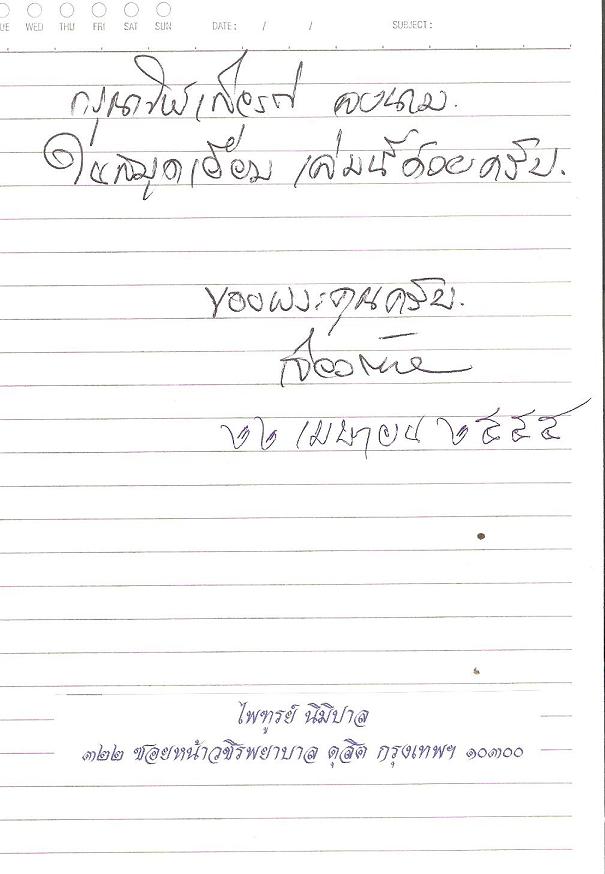 UE WED THU FRI SAT SUN DATE: / / SUBJECT:
กรุณาให้เกียรติ ลงนาม.
ในสมุดเยี่ยม เล่มนี้ด้วยครับ.
ขอบพระคุณครับ.
๒๒ เมษายน ๒๕๕๕
ไพฑูรย์ นิมิปาล
๓๒๒ ซอยหน้าวชิรพยาบาล ดุสิต กรุงเทพฯ ๑๐๓๐๐